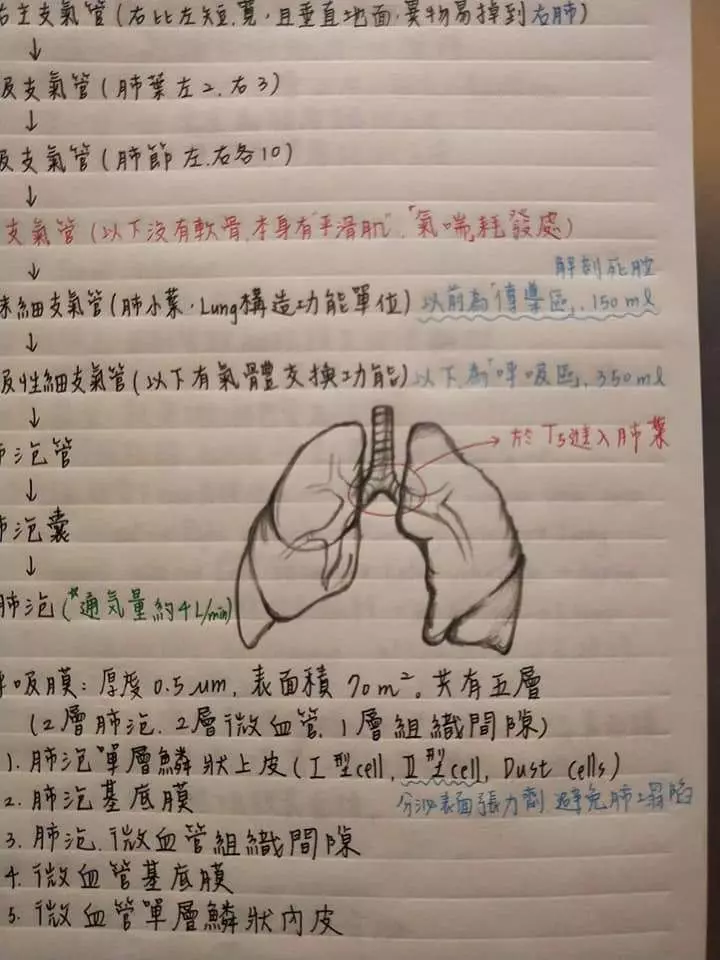 右主支氣管(右比左短.寬,且垂直地面,異物易掉到右肺)
↓
級支氣管(肺葉左2,右3)
↓
級支氣管(肺節左.右各10)
↓
支氣管(以下沒有軟骨,本身有"平滑肌",「氣喘耗發處)
↓
解剖死腔
末細支氣管(肺小葉,Lung構造功能單位)以前為「傳導區」,150 ml
↓
吸性細支氣管(以下有氣體交換功能)以下為「呼吸區」,350ml
↓
肺泡管
↓
肺泡囊
↓
肺泡(*通気量約4L/min)
→於T5進入肺葉
呼吸膜:厚度0.5μm,表面積70m²。共有五層
(2層肺泡.2層微血管.1層組織間隙)
1.肺泡單層鱗狀上皮(I型cell,Ⅱ型cell, Dust cells)
分泌表面張力劑,避免肺塌陷
2.肺泡基底膜
3.肺泡.微血管組織間隙
4.微血管基底膜
5.微血管單層鱗狀內皮